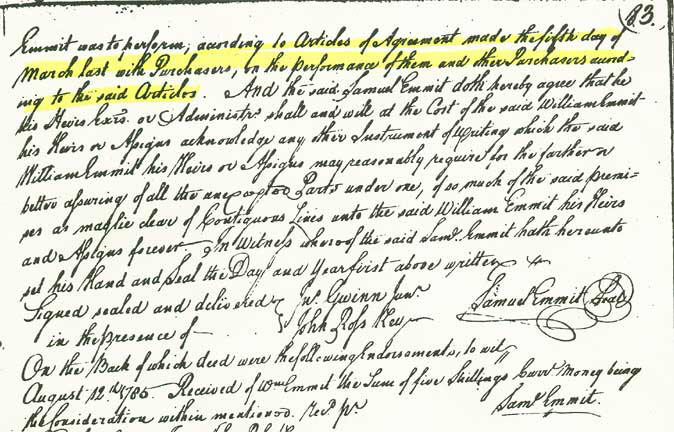 83.
Emmit was to perform, acording to Articles of Agreement made the fifth day of
March last with Purchasers, on the performance of them and other Purchasers accord-
ing to the said Articles. And the said Samuel Emmit doth hereby agree that he
his Heirs Exrs. or Administrs. shall and will at the Cost of the said William Emmit
his Heirs or Assigns acknowledge any other Instrument of Writing which the said
William Emmit his Heirs or Assigns may reasonably require for the farther or
better assuring of all the unexcepted Parts under one, of so much of the said premi-
ses as may lie clear of Contiguous Lines unto the said William Emmit his Heirs
and Assigns forever. In Witness whereof the said Saml. Emmit hath hereunto
set his Hand and Seal the Day and Year first above written
Signed sealed and delivered Jn. Gwinn Junr. Samuel Emmit Seal
in the presence of John Ross Key
On the Back of which deed were the following Endorsements, to wit,
August 12.th 1785. Received of Wm. Emmit the Sum of five Shillings Curr. Money being
the Consideration within mentioned. Recd. pr. Saml. Emmit.